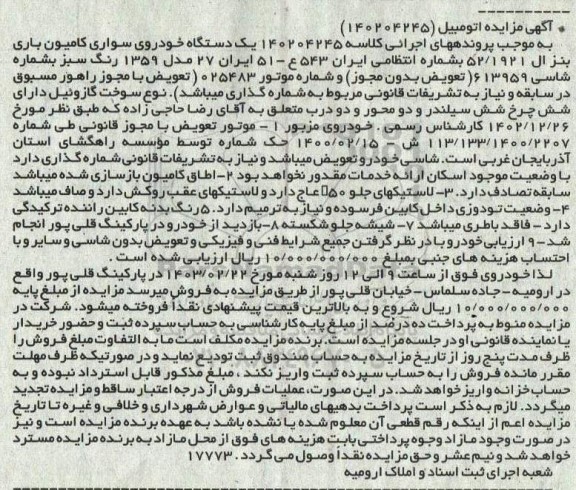 آگهی مزایده اتومبیل (۱۴۰۲۰۴۲۴۵)
به موجب پروندههای اجرائی کلاسه ۱۴۰۲۰۴۲۴۵ یک دستگاه خودروی سواری کامیون باری
بنز ال ۵۲/۱۹۲۱ بشماره انتظامی ایران ۵۴۳ ع -۵۱ ایران ۲۷ مدل ۱۳۵۹ رنگ سبز بشماره
شاسی ۶۱۳۹۵۹( تعویض بدون مجوز) و شماره موتور ۰۲۵۴۸۳ ( تعویض با مجوز راهور مسبوق
در سابقه و نیاز به تشریفات قانونی مربوط به شماره گذاری میباشد). نوع سوخت گازوئیل دارای
شش چرخ شش سیلندر و دو محور و دو درب متعلق به آقای رضا حاجی زاده که طبق نظر مورخ
۱۴۰۲/۱۲/۲۶ کارشناس رسمی، خودروی مزبور ۱ - موتور تعویض با مجوز قانونی طی شماره
۱۱۳/۱۳۳/۱۴۰۰/۲۲۰۷ ش ت ۱۴۰۰/۰۲/۱۵ حک شماره توسط مؤسسه راهگشای استان
آذربایجان غربی است. شاسی خودرو تعویض میباشد و نیاز به تشریفات قانونی شماره گذاری دارد
با وضعیت موجود اسکان ارائه خدمات مقدور نخواهد بود ۲-اطاق کامیون بازسازی شده میباشد
سابقه تصادف دارد. ۳- لاستیکهای جلو ۵۰٪ عاج دارد و لاستیکهای عقب روکش دارد و صاف میباشد
۴- وضعیت تودوزی داخل کابین فرسوده و نیاز به ترمیم دارد. ۵رنگ بدنه کابین راننده ترکیدگی
دارد - فاقد باطری میباشد ۷- شیشه جلو شکسته ۸-بازدید از خودرو در پارکینگ قلی پور انجام
شد- ۹ ارزیابی خودرو با در نظر گرفتن جمیع شرایط فنی و فیزیکی و تعویض بدون شاسی و سایر و با
احتساب هزینه های جنبی بمبلغ ۱۰/۰۰۰/۰۰۰/۰۰۰ ریال ارزیابی شده است .
لذا خودروی فوق از ساعت ۹ الی ۱۲ روز شنبه مورخ ۱۴۰۳/۰۲/۲۲ در پارکینگ قلی پور واقع
در ارومیه - جاده سلماس - خیابان قلی پور از طریق مزایده به فروش میرسد مزایده از مبلغ پایه
۱۰/۰۰۰/۰۰۰/۰۰۰ ریال شروع و به بالاترین قیمت پیشنهادی نقداً فروخته میشود. شرکت در
مزایده منوط به پرداخت ده درصد از مبلغ پایه کارشناسی به حساب سپرده ثبت و حضور خریدار
یا نماینده قانونی او در جلسه مزایده است. برنده مزایده مکلف است ما به التفاوت مبلغ فروش را
ظرف مدت پنج روز از تاریخ مزایده به حساب صندوق ثبت تودیع نماید و در صورتیکه ظرف مهلت
مقرر مانده فروش را به حساب سپرده ثبت واریز نکند ، مبلغ مذکور قابل استرداد نبوده و به
حساب خزانه واریز خواهد شد. در این صورت، عملیات فروش از درجه اعتبار ساقط و مزایده تجدید
میگردد. لازم به ذکر است پرداخت بدهیهای مالیاتی و عوارض شهرداری و خلافی و غیره تا تاریخ
مزایده اعم از اینکه رقم قطعی آن معلوم شده یا نشده باشد به عهده برنده مزایده است و نیز
در صورت وجود مازاد وجوه پرداختی بابت هزینه های فوق از محل مازاد به برنده مزایده مسترد
خواهد شد و نیم عشر و حق مزایده نقداً وصول می گردد . ۱۷۷۷۳
شعبه اجرای ثبت اسناد و املاک ارومیه